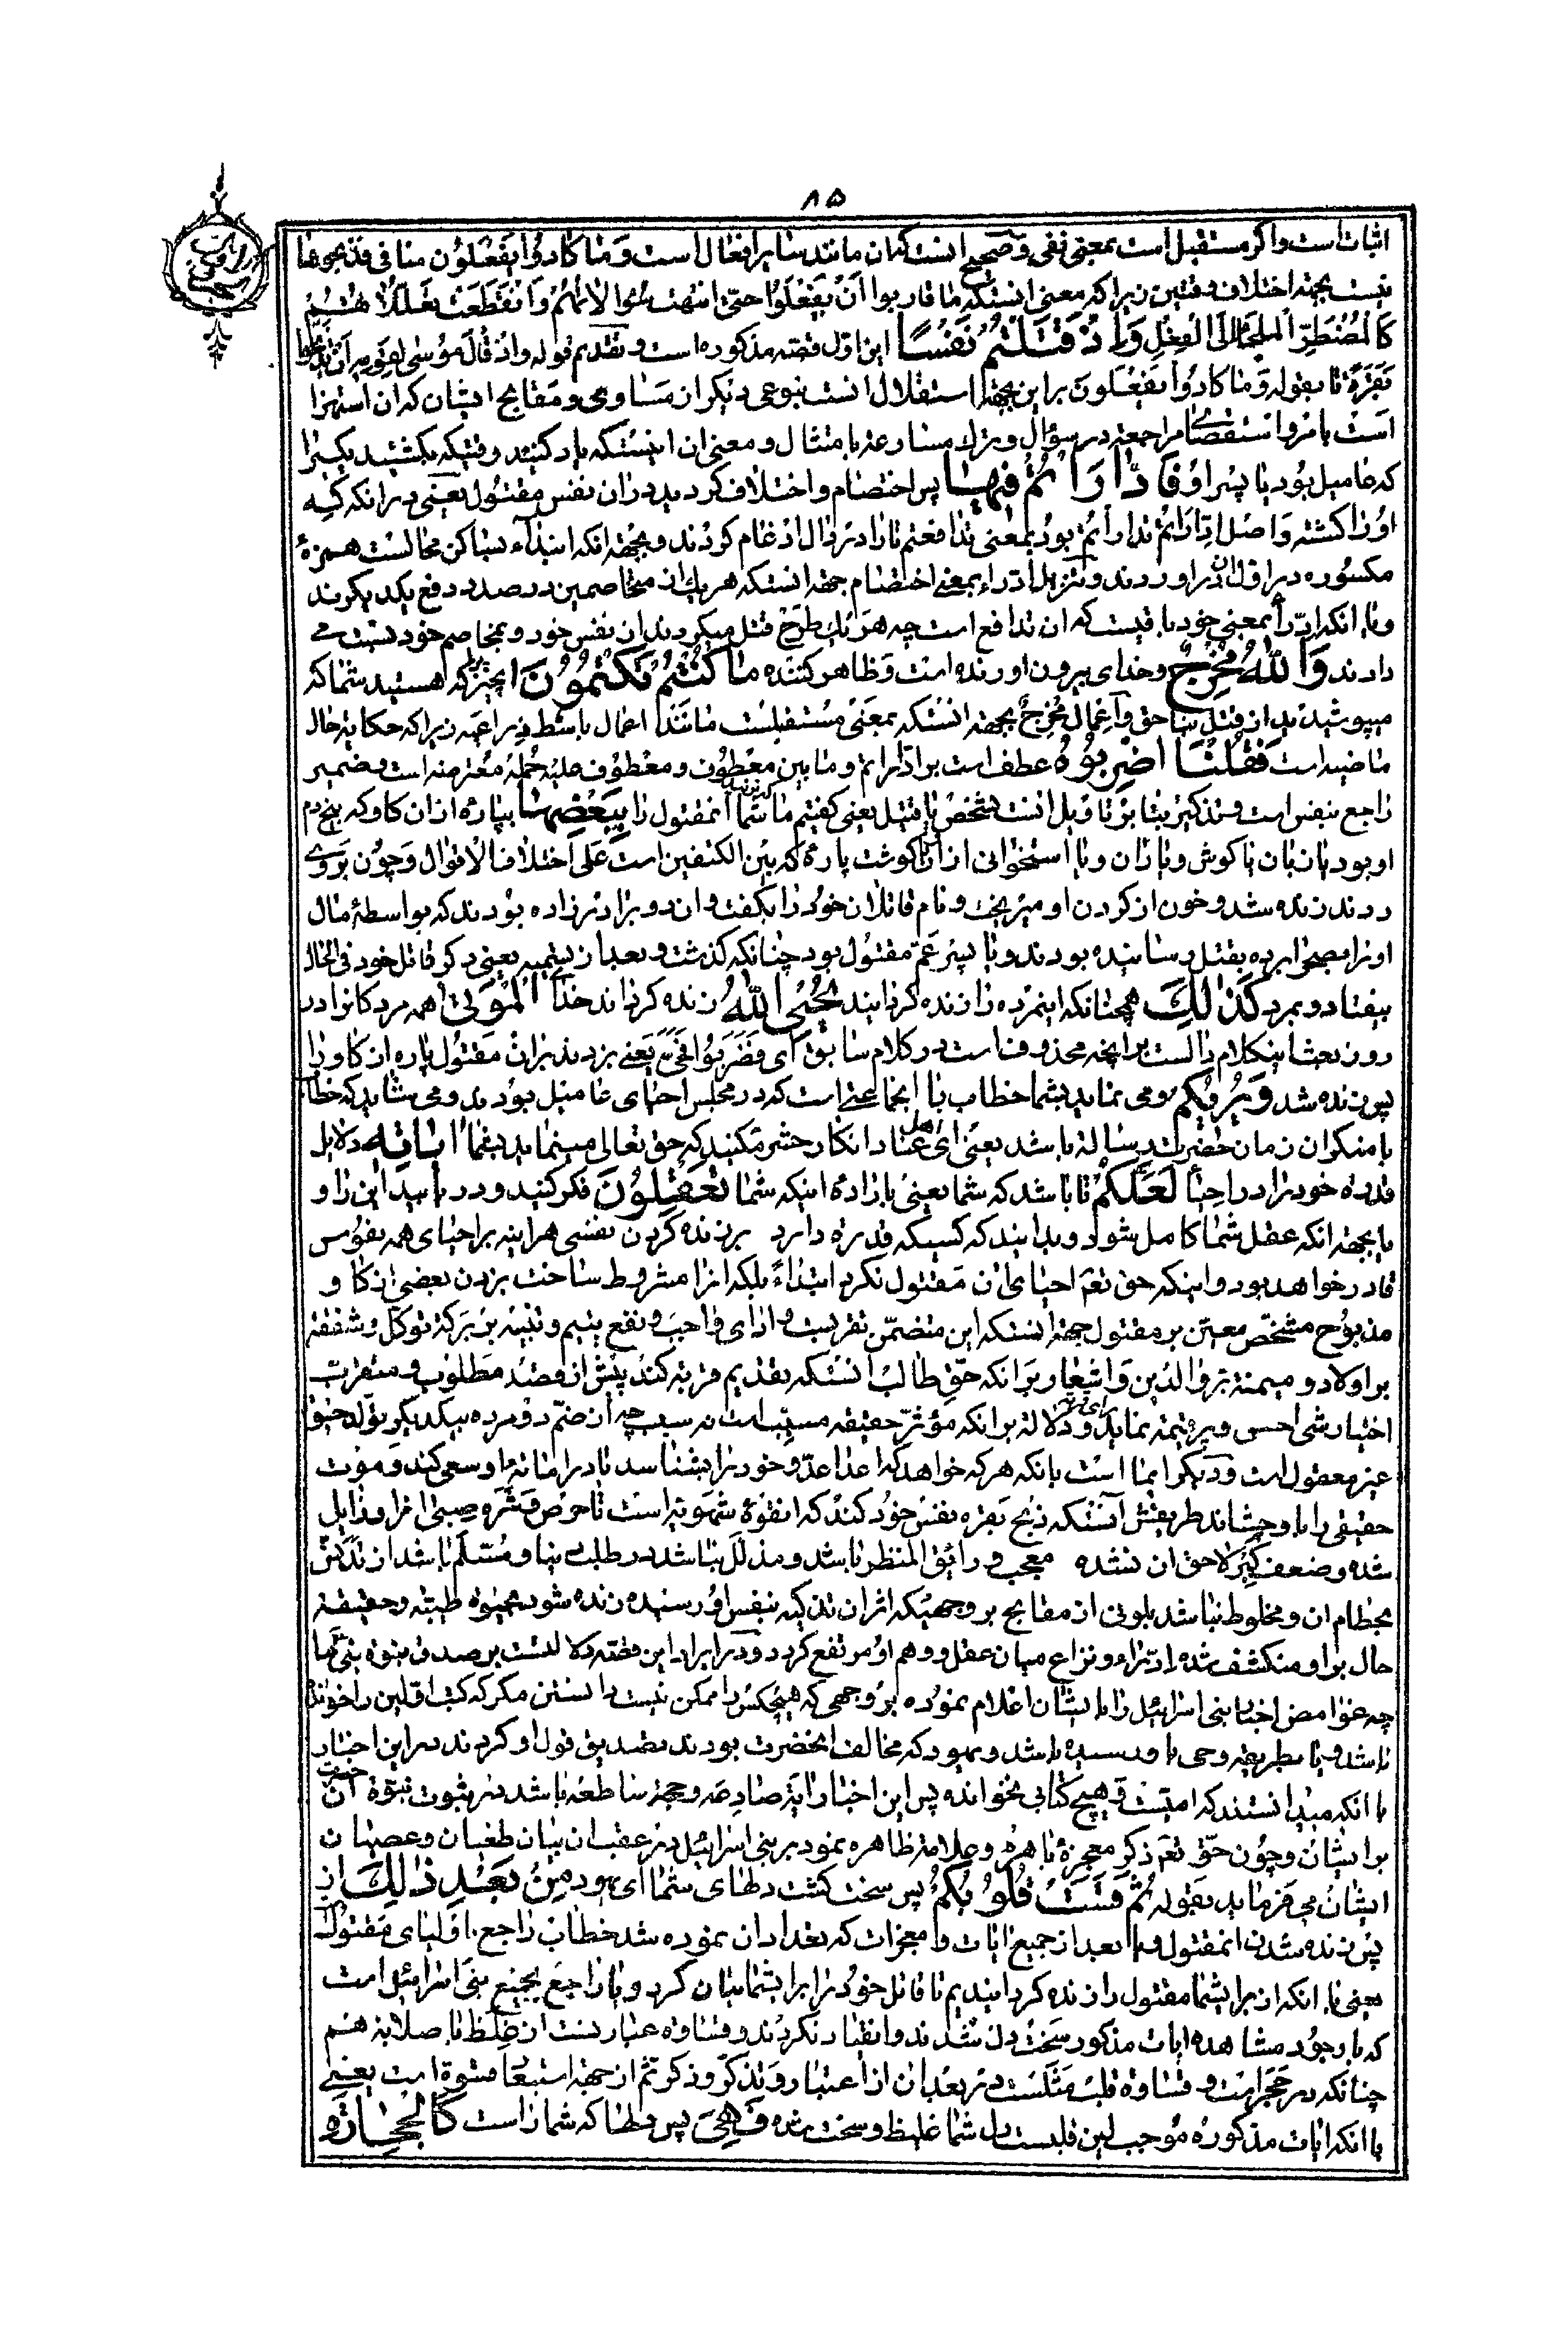 ٨۵
اثبات است واکر مستقبل است بمعنی نفی وصحیح انست که ان مانند سایر افعال است وَمٰا کادُوا یَفعَلُون منافی فذبحوها
نیست بجهة اختلاف وقتین زیرا که معنی انستکه ما قاربوا اَنْ یَفْعَلُوا حتّی انتهت سؤالاتهُمْ وَانْقَطَعَتْ تعللاتهم
کَالمُضْطَرّ الملجأ الَی الفِعْلِ وَاِذْ قَتَلْتُمْ نَفْسًا این اول قصه مذکوره است وتقدیم قوله واذ قالَ مُوسٰی لِقومه ان تذبحوا
بَقَرَةً تا بقوله وَمٰا کادُوا یَفْعَلونَ براین بجهة استقلال انست بنوعی دیگر از مَساوی ومَقابح ایشان که ان استهزا
است بامر واستقصای مراجعه در سؤال وترك مسارعة بامتثال ومعنی ان اینستکه یاد کنید وقتیکه بکشتید یکیرا
که عامیل بود یا پسر او فَادّٰارَأتُمْ فیهٰا پس اختصام واختلاف کردید دران نفس مقتول یعنی درانکه که
اورا کشته واصل ادّارأتم تدارأتم بود بمعنی تدافعتم تا را در دال ادغام کردند وبجهة انکه ابتداء بساکن محالست همزهٔ
مکسوره در اول ان دراوردند وتنزیل ادّراء بمعنی اختصام جهة انستکه هریك از متخاصمین در صدد دفع یکدیکرند
ویا انکه ادّرأ بمعنی خود باقیست که ان تدافع است چه هریك طرح قتل میکردند از نفس خود وبمخاصم خود نسبت می
دادند وَاللّٰهُ مُخْرِجٌ وخدای بیرون اورنده است وظاهر کننده مٰا کُنْتُمْ تَکْتُمُونَ انچیزیرا که هستید شما که
میپوشیدید از قتل بناحق واِعمال مُخرِجٌ بجهة انستکه بمعنی مستقبلست مانند اعمال باسط ذِراعیه زیرا که حکایة حال
ماضیه است فَقُلْنٰا اضْرِبُوهُ عطف است بر ادّارأتم وما بین معطوف ومعطوف علیه جملهٔ معترضه است وضمیر
راجع بنفس است وتذکیر بنا بر تاویل انست بشخص یا قتیل یعنی کفتیم ما شما که بزنید انمقتول را بِبَعْضِهٰا بپاره ازان کاو که بیخ دم
او بود یا زبان یا کوش ویا ران ویا استخوانی ازان یا کوشت پارهٔ که بین الکتفین است عَلی اختلاف الاقوال وچون بروی
زدند زنده شد وخون از کردن او میریخت ونام قاتلان خود را بکفت وان دو برادرزاده بودند که بواسطهٔ مال
اورا بصحرا برده بقتل رسانیده بودند ویا پسر عمّ مقتول بود چنانکه کذشت وبعد از تسمیه یعنی ذکر قاتل خود فی الحال
بیفتاد وبمرد کَذٰلِكَ همچنانکه اینمرده را زنده کردانید یُحْیِی اللّٰهُ زنده کرداند خدا الْمَوْتٰی همه مردکانرا در
روز بعث اینکلام دالست برانچه محذوفست در کلام سابق ای فضربوا فحیی یعنی بزدند بران مقتول پاره از کاو را
پس زنده شد وَیُریکُمْ ومی نماید بشما خطاب با انجماعتی است که در مجلس احیای عامیل بودند ومی شاید که خطاب
با منکران زمان حضرت رسالة باشد یعنی ای اهل عناد انکار حشر مکنید که حق تعالی مینماید بشما اٰیٰاتِهِ دلایل
قدرة خود را در احیا لَعَلَّکُمْ تا باشد که شما یعنی بارادهٔ اینکه شما تَعْقِلُونَ فکر کنید ودریابید این را و
یا بجهة انکه عقل شما کامل شود وبدانید که کسیکه قدرة دارد برزنده کردن نفسی هراینه براحیای همه نفوس
قادر خواهد بود واینکه حق تعم احیای ان مقتول نکرد ابتداءً بلکه انرا مشروط ساخت بزدن بعضی از کاو
مذبوح مشخّص معین بر مقتول جهة انستکه این متضمّن تقربست وادای واجب ونفع یتیم وتنبیه بر برکة توکل وشفقة
بر اولاد ومیمنة برّ والدین واشعار برانکه حقّ طالب انستکه تقدیم قربة کند پیش از قصد مطلوب ومتقرب
اختیار شی احسن وپر قیمة نماید ودلالة برانکه مؤثر حقیقه مسبّب است نه سبب چه از ضمّ دو مرده بیکدیکر تولد حیوة
غیر معقول است ودیکر ایما است بانکه هر که خواهد که اعدا عدوّ خود را بشناسد تا در اماتهٔ او سعی کند وموت
حقیقی را باو چشاند طریقش انستکه ذبح بقره نفس خود کند که انقوهٔ شهویه است تا حرص وشَرَه صِبٰی ازو زایل
شده وضعف کِبَر لاحق ان نشده معجب ورایق المنظر باشد ومذلّل نباشد در طلب دنیا ومُسَلّم باشد از تدنّس
بحطام ان ومخلوط نباشد بلونی از مقابح بر وجهیکه اثر ان تذکیه بنفس او رسیده زنده شود بحیوة طیّبه وحقیقة
حال براو منکشف شده ادّراء ونزاع میان عقل ووهم او مرتفع کردد ودر ایراد این قصّه دلالتست بر صدق نبوة نبیّ ما
چه غوامض اخبار بنی اسرائیل را بایشان اعلام نموده بر وجهی که هیچکس را ممکن نیست دانستن مکر که کتب اولین را خوانده
باشد ویا بطریقه وحی باو رسیده باشد ویهود که مخالف انحضرت بودند تصدیق قول او کردند دراین اخبار
با انکه میدانستند که امیست وهیچ کتابی نخوانده پس این اخبار ایة صادعه وحجة ساطعه باشد در ثبوت نبوّة ان حضرت
برایشان وچون حقّ تعم ذکر معجزهٔ باهره وعلامة ظاهره نمود بر بنی اسرائیل در عقب ان بیان طغیان وعصیان
ایشان می فرماید بقوله ثُمَّ قَسَتْ قُلُوبُکُمْ پس سخت کشت دلهای شما ای یهود مِنْ بَعْدِ ذٰلِكَ از
پس زنده شدن انمقتول ویا بعد از جمیع ایات ومعجزات که تعداد ان نموده شد خطاب راجع باولیای مقتول است
یعنی با انکه از برای شما مقتول را زنده کردانیدیم تا قاتل خود را برای شما بیان کرد ویا راجع بجمیع بنی اسرائیل است
که با وجود مشاهده ایات مذکور سخت دل شدند وانقیاد نکردند وقساوة عبارتست از غِلَظ با صلابة هم
چنانکه در حَجَر است وقساوة قلب مَثَلست در بعد ان از اعتبار وتذکّر وذکر ثمّ از جهة استبعاد قسوة است یعنی
با انکه ایات مذکوره مُوجب لین قلبست دل شما غلیظ وسخت شده فَهِیَ پس دلها که شماراست کَالْحِجٰارَةِ